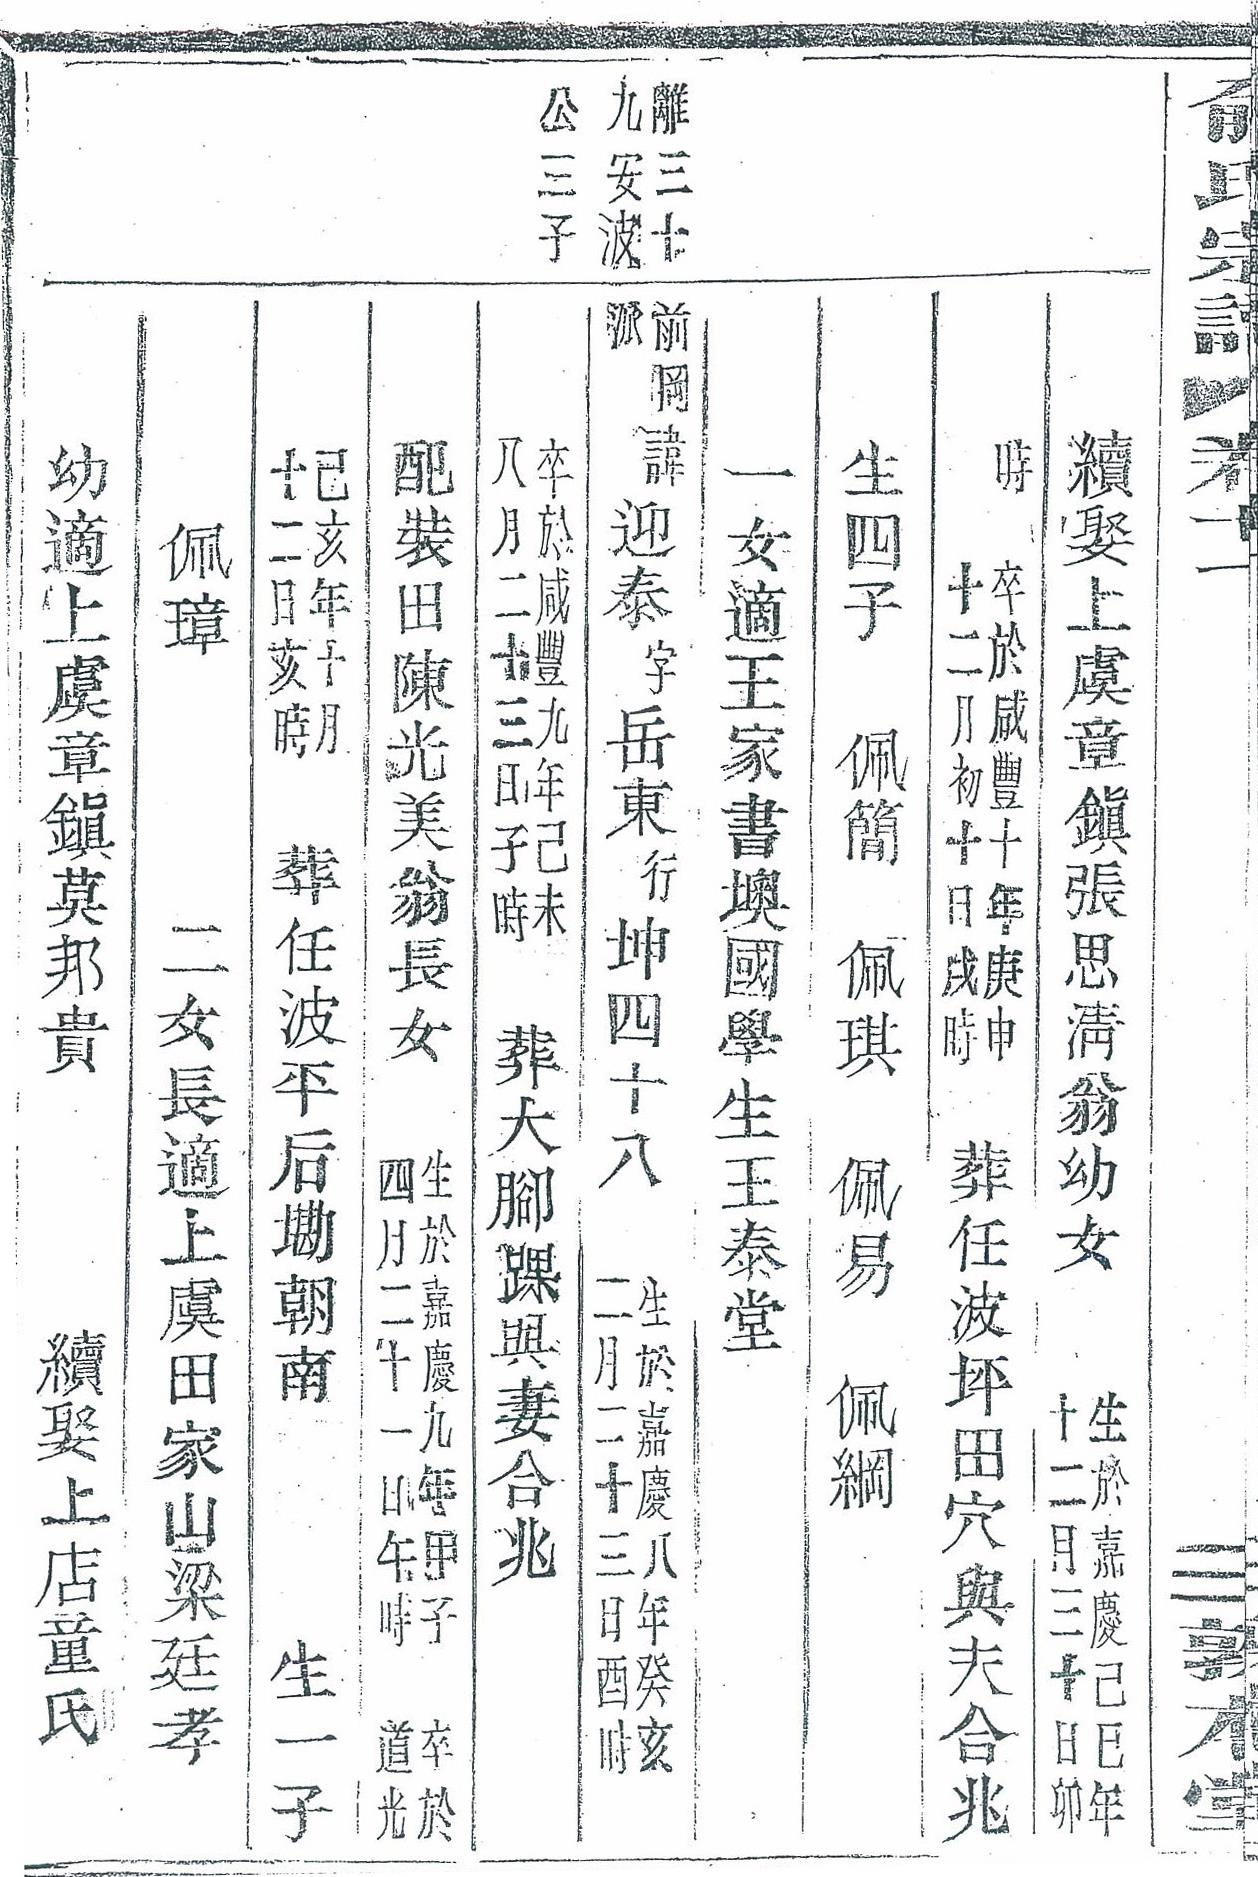 俞氏宗譜
卷十一
三
敦本堂
續娶上虞章鎮張思淸翁幼女
生於嘉慶己巳年
十二月三十日卯
時
卒於咸豐十年庚申
十二月初十日戌時
葬任波坪田穴與夫合兆
生四子 佩簡 佩琪 佩易 佩綱
一女適王家書墺國學生王泰堂
離三十
九安波
公三子
前岡
派
諱迎泰字岳東行坤四十八
生於嘉慶八年癸亥
二月二十三日酉時
卒於咸豐九年己未
八月二十三日子時
葬大腳踝與妻合兆
配裝田陳光美翁長女
生於嘉慶九年甲子
四月二十一日午時
卒於
道光
己亥年十月
十二日亥時
葬任波平后墈朝南 生一子
佩璋 二女長適上虞田家山梁廷孝
幼適上虞章鎮莫邦貴 續娶上店童氏